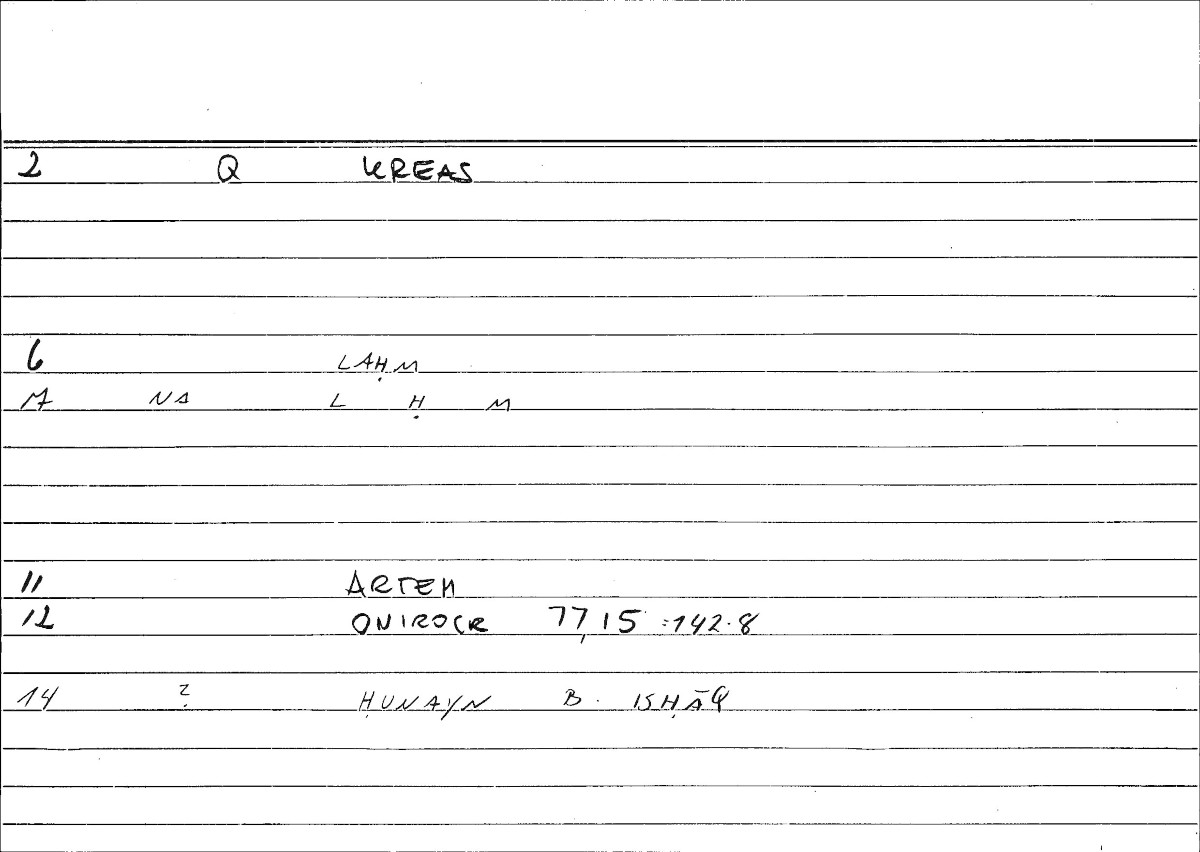 2 Q KREAS
6 LAḤM
7 NS L Ḥ M
11 ARTEM
12 ONIROCR 77,15 :142.8
14 ? ḤUNAYN B. ISḤĀQ